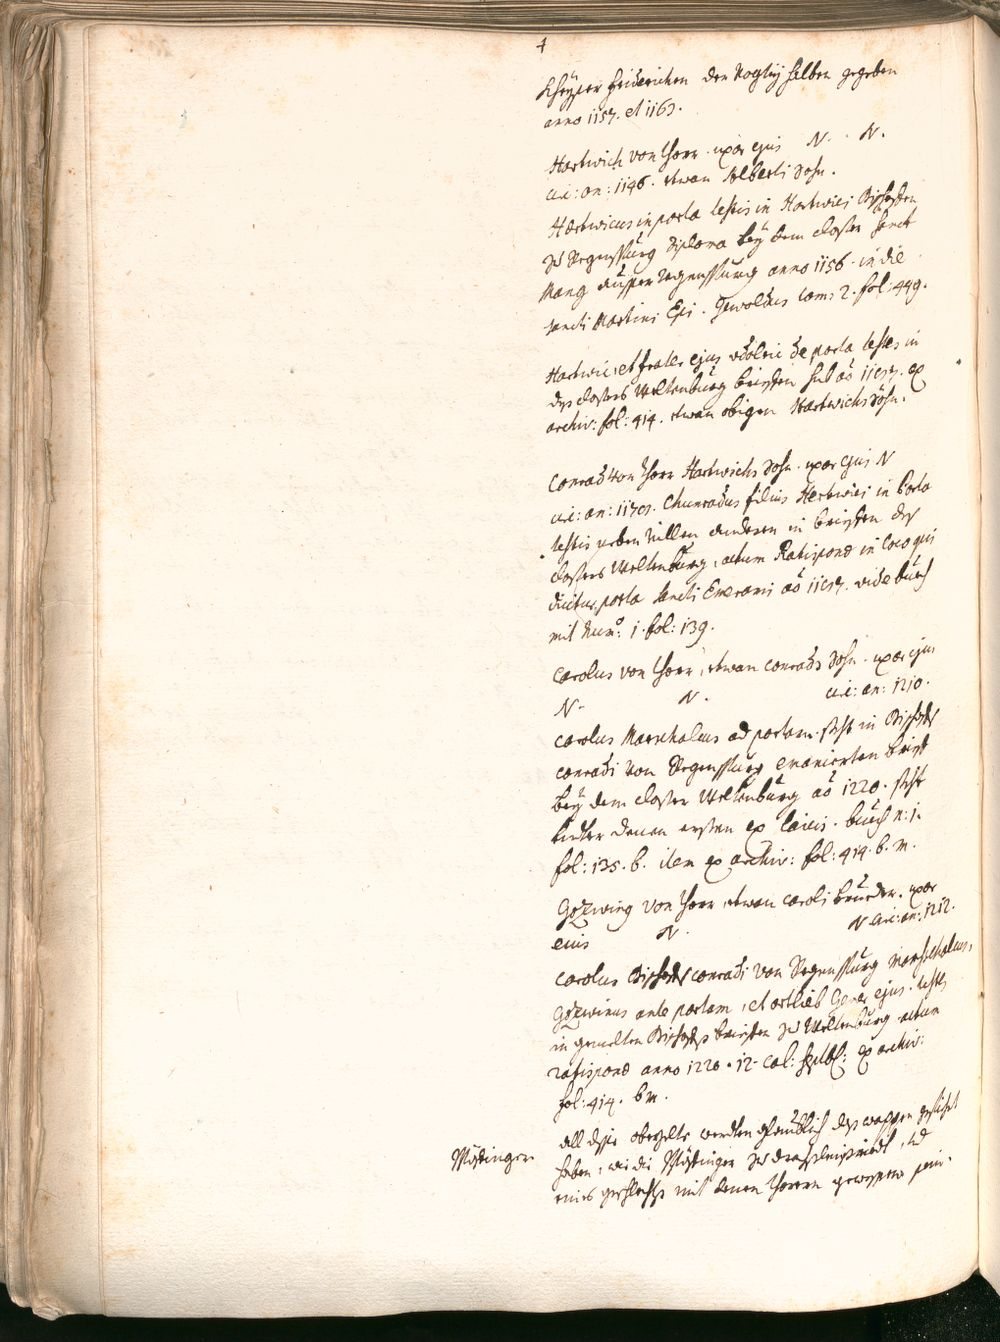 4
Kheyser Friderichen der Vogtey halben gegeben
anno 1157. et 1163.
Hartwich von Thorr . uxor ejus N. N.
vi: an: 1146. etwan Alberti Sohn.
Hartwicus in porta testis in Hartwici Bischoffen
zu Regenspurg Diploma bey dem closter Sanct
Mang ausser Regenspurg anno 1156. in die
sancti Martini Epi. Gewoldus tom: 2. fol: 449.
Hartwic: et frater ejus Udolric de porta testes in
des closters Weltenburg brieffen sub aō 11 . ex
archiv: fol: 414. etwan obigen Hartwichs Söhn.
Conrad von Thorr Hartwichs Sohn . uxor ejus N
vi: an: 1170. Chunradus filius Hertwici in Porta
testis neben villen anderen in brieffen des
closters Weltenburg, actum Ratisponæ in loco qui
dicitur porta sancti Emerami aō 11 . vide buech
mit Numº: 1. fol: 139.
Carolus von Thorr, etwan Conrads Sohn . uxor ejus
N. N. vi: an: 1210.
Carolus Marschalcus ad portam . steht in Bischoffs
Conradi von Regenspurg brieff
bey dem closter Weltenburg aō 1220. steht
unter denen ersten ex laicis . buech n: 1.
fol: 135. b. item ex archiv: fol: 414. b. m.
Gozwing von Thorr, etwan Caroli brueder . uxor
eius N. N vi: an: 1212.
Carolus Bischoffs Conradi von Regenspurg Marschalcus,
Gozwinus ante portam, et ortlieb Gener ejus . testes
in gemelten Bischoffs brieffen zu Weltenburg . actum
ratisponæ anno 1220. 12. cal: septbr: ex archiv:
fol: 414. bm.
all dise oberzelte werden glaublich das wappen gefiehrt
Mästinger haben, wie die Mästinger zu , und
eines geschlechts mit denen Thorern gewessen sein.